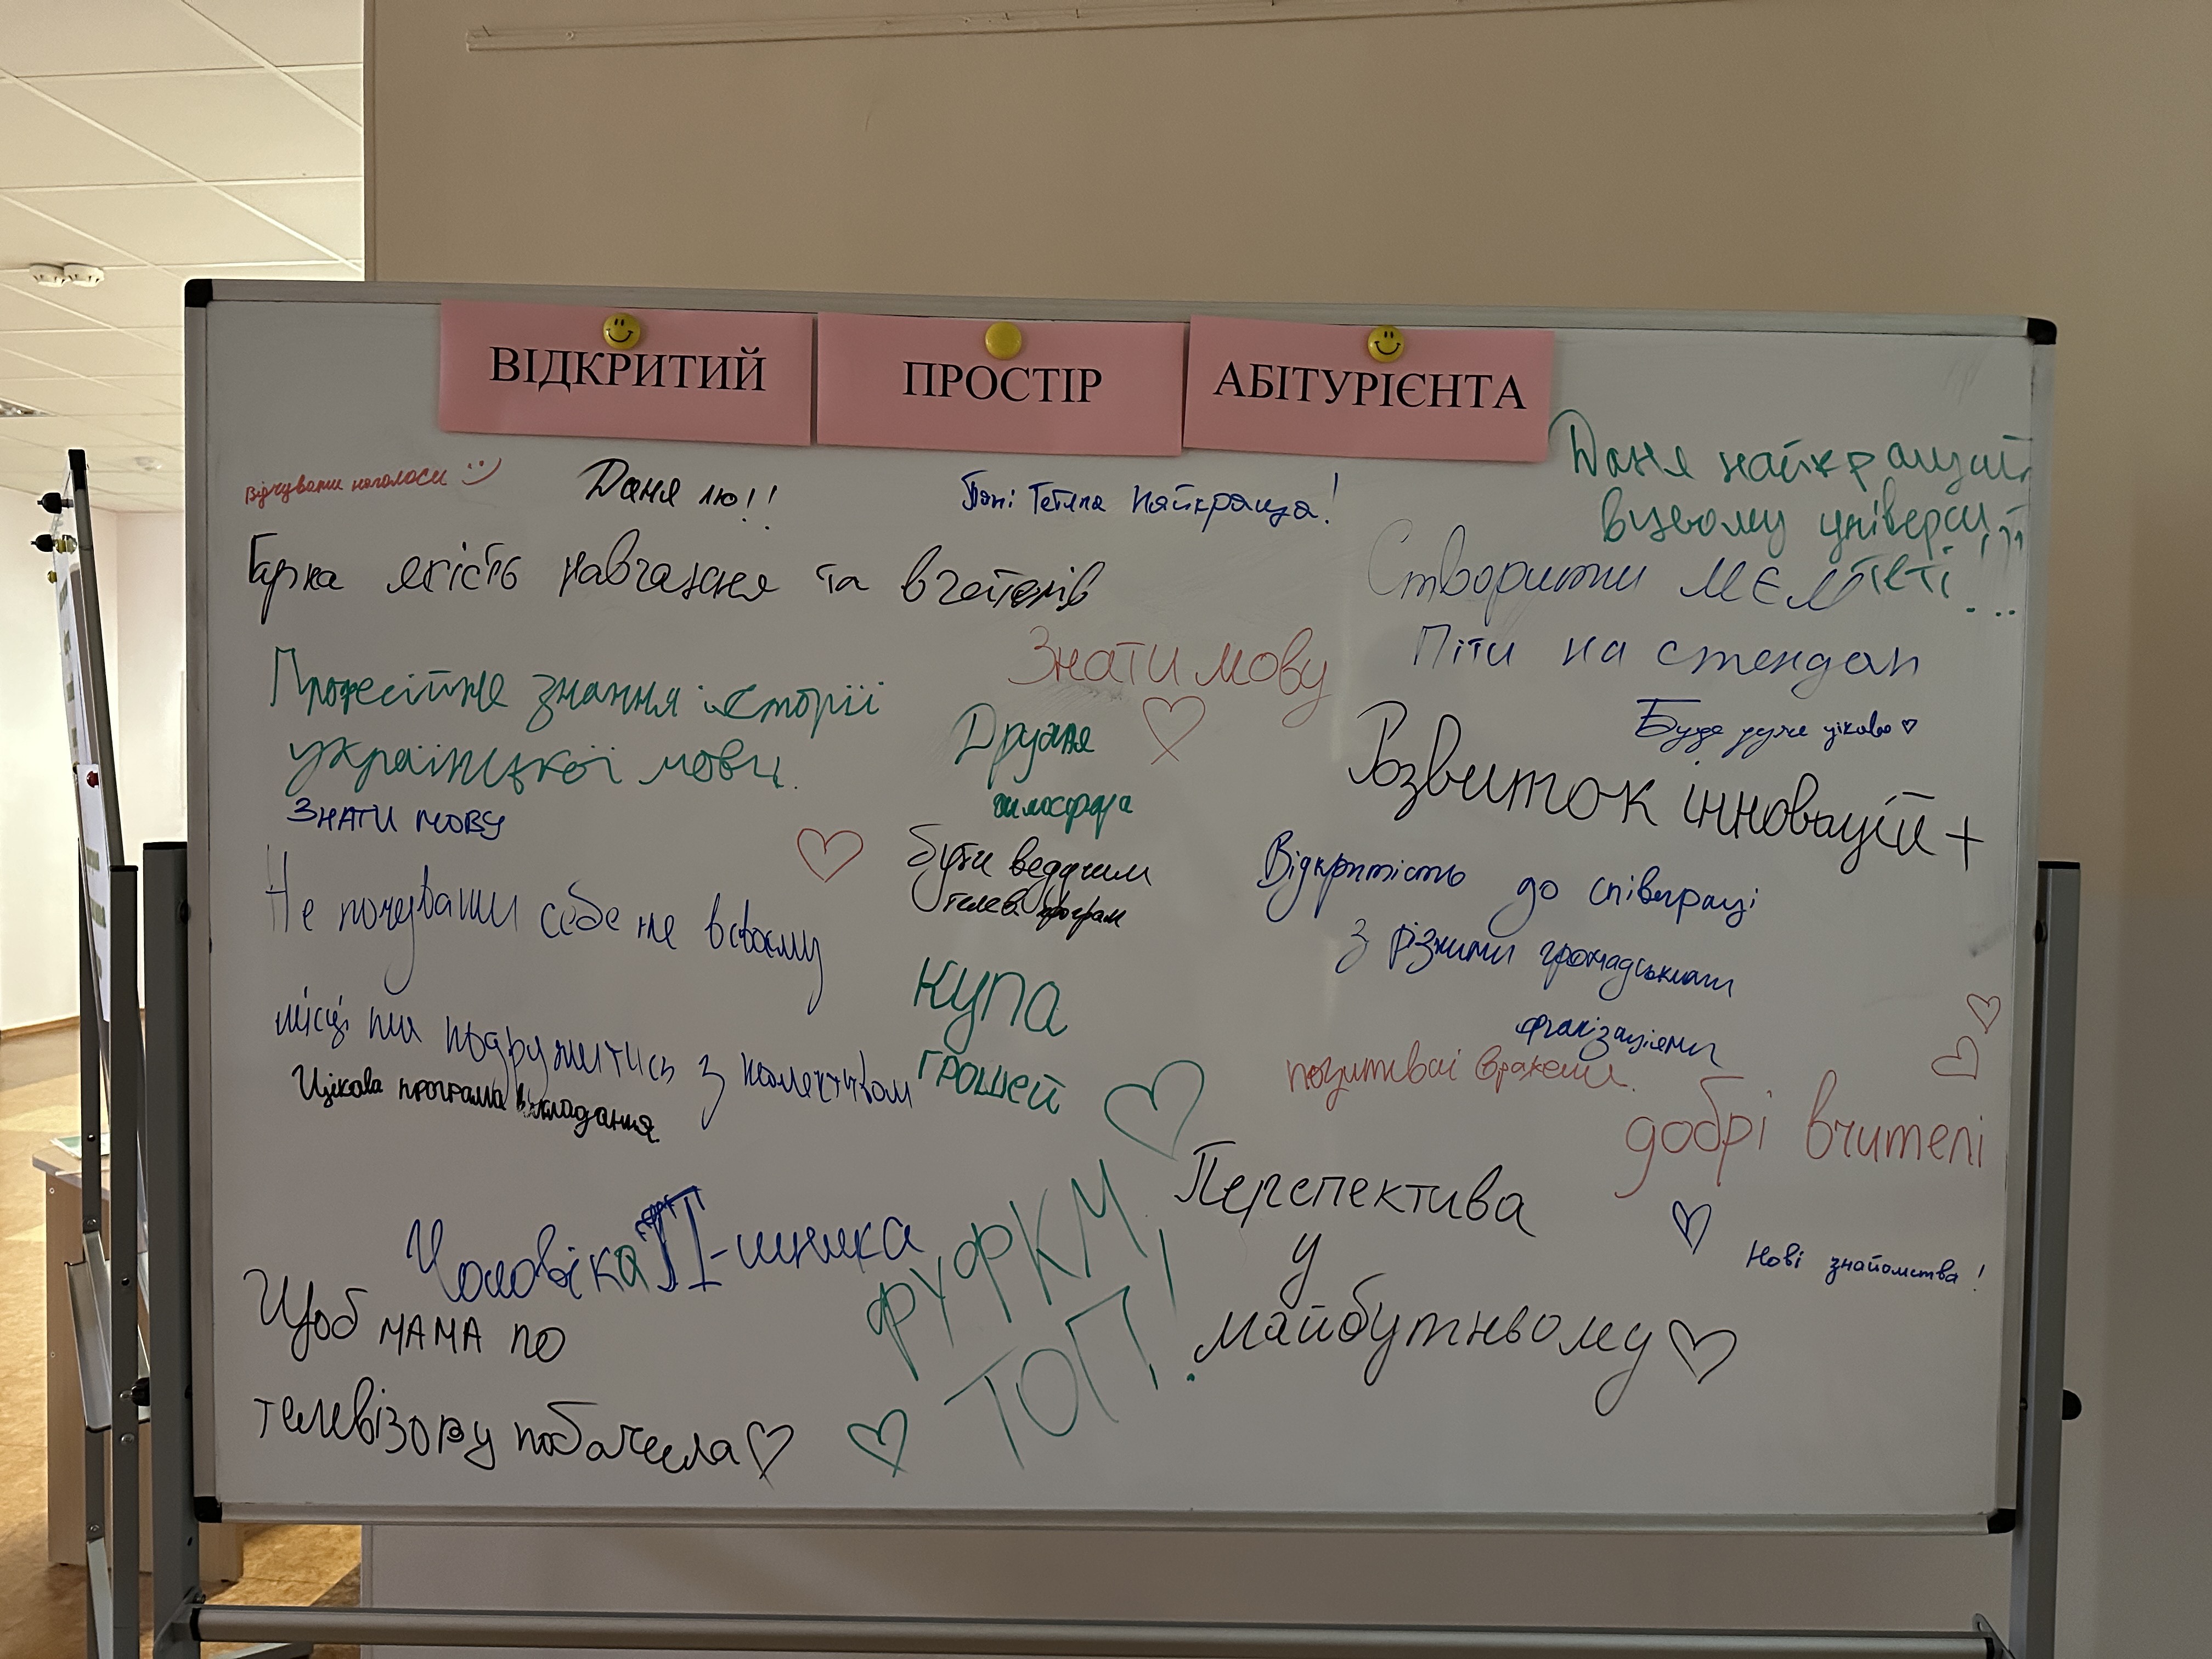 ВІДКРИТИЙ ПРОСТІР АБІТУРІЄНТА
Відчувати наголоси
Даня лю!!
Пані Тетяна найкраща!
Даня найкращий
в цьому універси
теті!!!...
Гарна якість навчання та вчителів
Створити мєм
Піти на стендап
Знати мову
Професійне знання історії
української мови.
Буде дуже цікаво
Друзья
філософа
Розвиток інновацій +
ЗНАТИ МОВУ
Бути ведучим
телев. програм
Відкритість до співпраці
з різними громадськими
організаціями
Не почувати себе не в своєму
місці та подружитись з колективом
Цікава програма викладання.
купа
грошей
позитивні враження.
добрі вчителі
Чоловіка ІТ-шника
ФУФКМ
ТОП!
Перспектива
у
майбутньому
Нові знайомства!
Щоб мама по
телевізору побачила